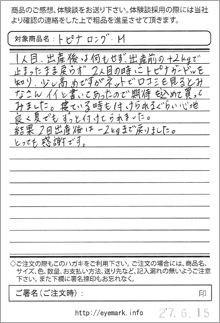 商品のご感想、体験談をお送り下さい。体験談採用の際には当社より確認の連絡をした上で粗品を進呈させて頂きます。
対象商品名：トピナロング M
1人目、出産後は何もせず出産前の+2kgで
止まったまま戻らず2人目の時にトピナガードルを
知り、少し高めですがネットで口コミを見るとみ
なさんイイと書いてあったので期待を込めて買って
みました。寝ている時も付けられるぐらい心地
良く昼でもずっと付けられました。
結果2目出産後は-2kgまで戻りました。
とっても感謝です。
◇ご注文の際もこのハガキをご利用下さい。ご注文の場合には、商品名、
サイズ、色、数量、お支払い方法、送り先など、記入漏れの無いようご注意
下さい。また下欄に署名捺印もお忘れなく。
ご署名(ご注文時)： 印
http://eyemark.info
27.6.15